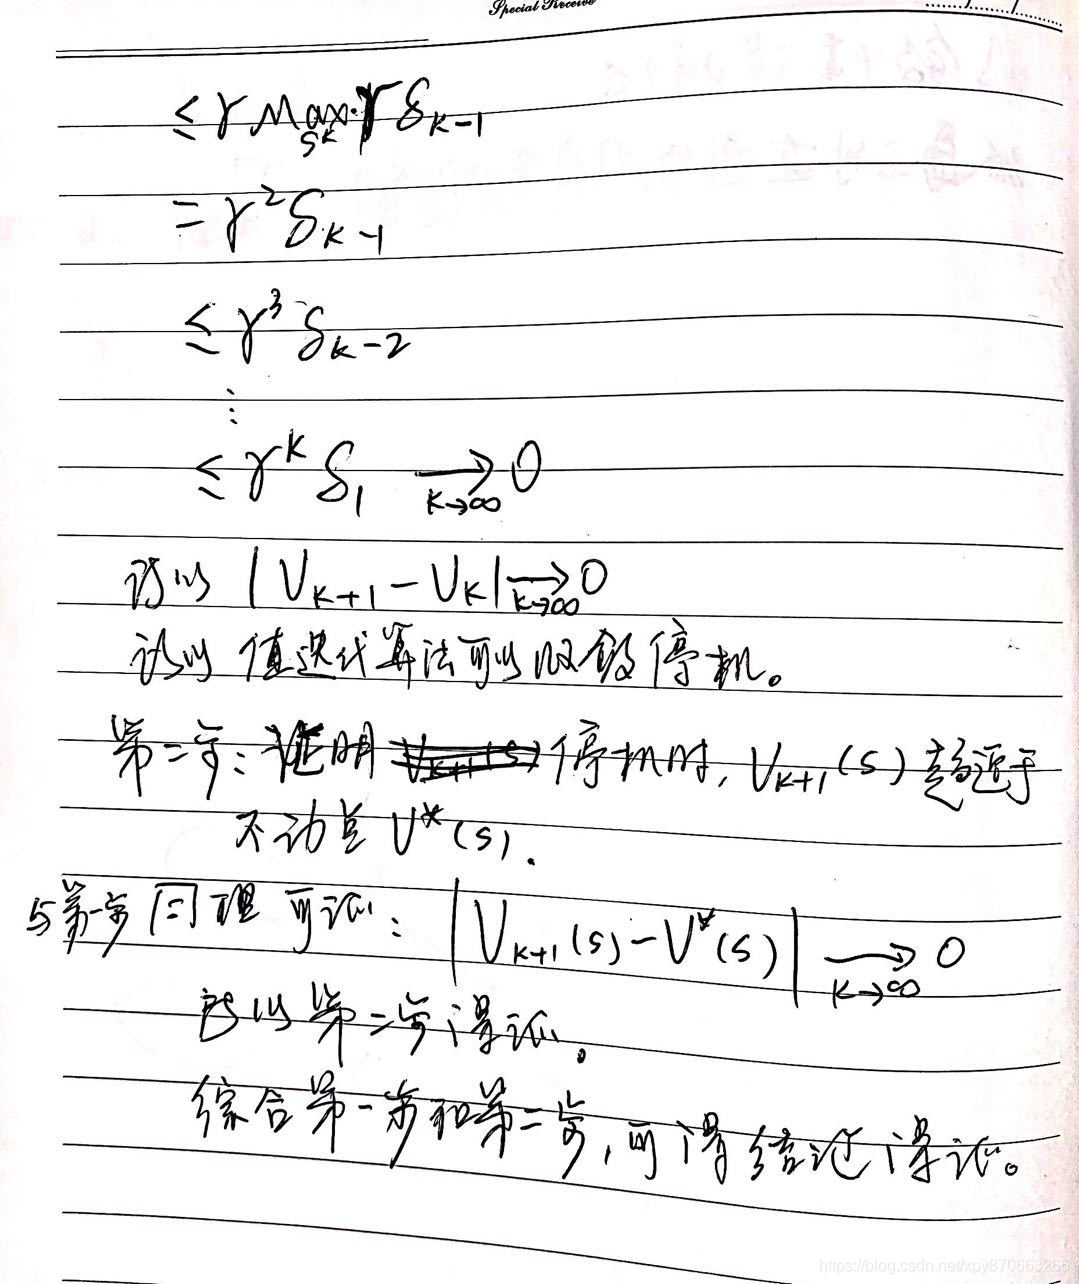 Special Receive
≤ γ Max_{S^k} · γ δ_{k-1}
= γ² δ_{k-1}
≤ γ³ δ_{k-2}
⋮
≤ γ^k δ_1 →_{k→∞} 0
所以 |V_{k+1} - V_k| →_{k→∞} 0
所以 值迭代算法可以收敛停机。
第二步: 证明 V_{k+1}(s) 停机时, V_{k+1}(s) 趋近于
不动点 V*(s).
与第一步同理可证: |V_{k+1}(s) - V*(s)| →_{k→∞} 0
所以第二步得证。
综合第一步和第二步, 可得结论得证。
https://blog.csdn.net/xpy870663266